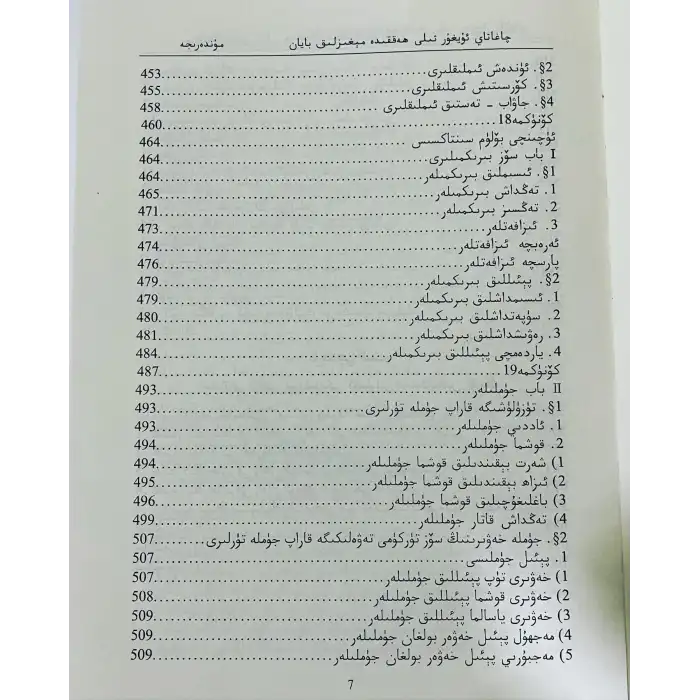 چاغاتاي ئۇيغۇر تىلى ھەققىدە مېغىزلىق بايان مۇندەرىجە
§2. ئۈندەش ئىملىقلىرى....................453
§3. كۆرسىتىش ئىملىقلىرى....................455
§4. جاۋاب - تەستىق ئىملىقلىرى....................458
كۆنۈكمە18....................460
ئۈچىنچى بۆلۈم سىنتاكسىس....................464
I باب سۆز بىرىكمىلىرى....................464
§1. ئىسىملىق بىرىكمىلەر....................464
1. تەڭداش بىرىكمىلەر....................465
2. تەڭسىز بىرىكمىلەر....................471
3. ئىزافەتلەر....................473
ئەرەبچە ئىزافەتلەر....................474
پارسچە ئىزافەتلەر....................476
§2. پېئىللىق بىرىكمىلەر....................479
1. ئىسىمداشلىق بىرىكمىلەر....................479
2. سۈپەتداشلىق بىرىكمىلەر....................480
3. رەۋىشداشلىق بىرىكمىلەر....................481
4. ياردەمچى پېئىللىق بىرىكمىلەر....................484
كۆنۈكمە19....................487
II باب جۈملىلەر....................493
§1. تۈزۈلۈشىگە قاراپ جۈملە تۈرلىرى....................493
1. ئاددىي جۈملىلەر....................493
2. قوشما جۈملىلەر....................494
1) شەرت بېقىندىلىق قوشما جۈملىلەر....................494
2) ئىزاھ بېقىندىلىق قوشما جۈملىلەر....................495
3) باغلىغۇچىلىق قوشما جۈملىلەر....................496
4) تەڭداش قاتار جۈملىلەر....................499
§2. جۈملە خەۋىرىنىڭ سۆز تۈركۈمى تەۋەلىكىگە قاراپ جۈملە تۈرلىرى..........507
1. پېئىل جۈملىسى....................507
1) خەۋىرى تۈپ پېئىللىق جۈملىلەر....................507
2) خەۋىرى قوشما پېئىللىق جۈملىلەر....................508
3) خەۋىرى ياسالما پېئىللىق جۈملىلەر....................509
4) مەجھۇل پېئىل خەۋەر بولغان جۈملىلەر....................509
5) مەجبۇرىي پېئىل خەۋەر بولغان جۈملىلەر....................509
7